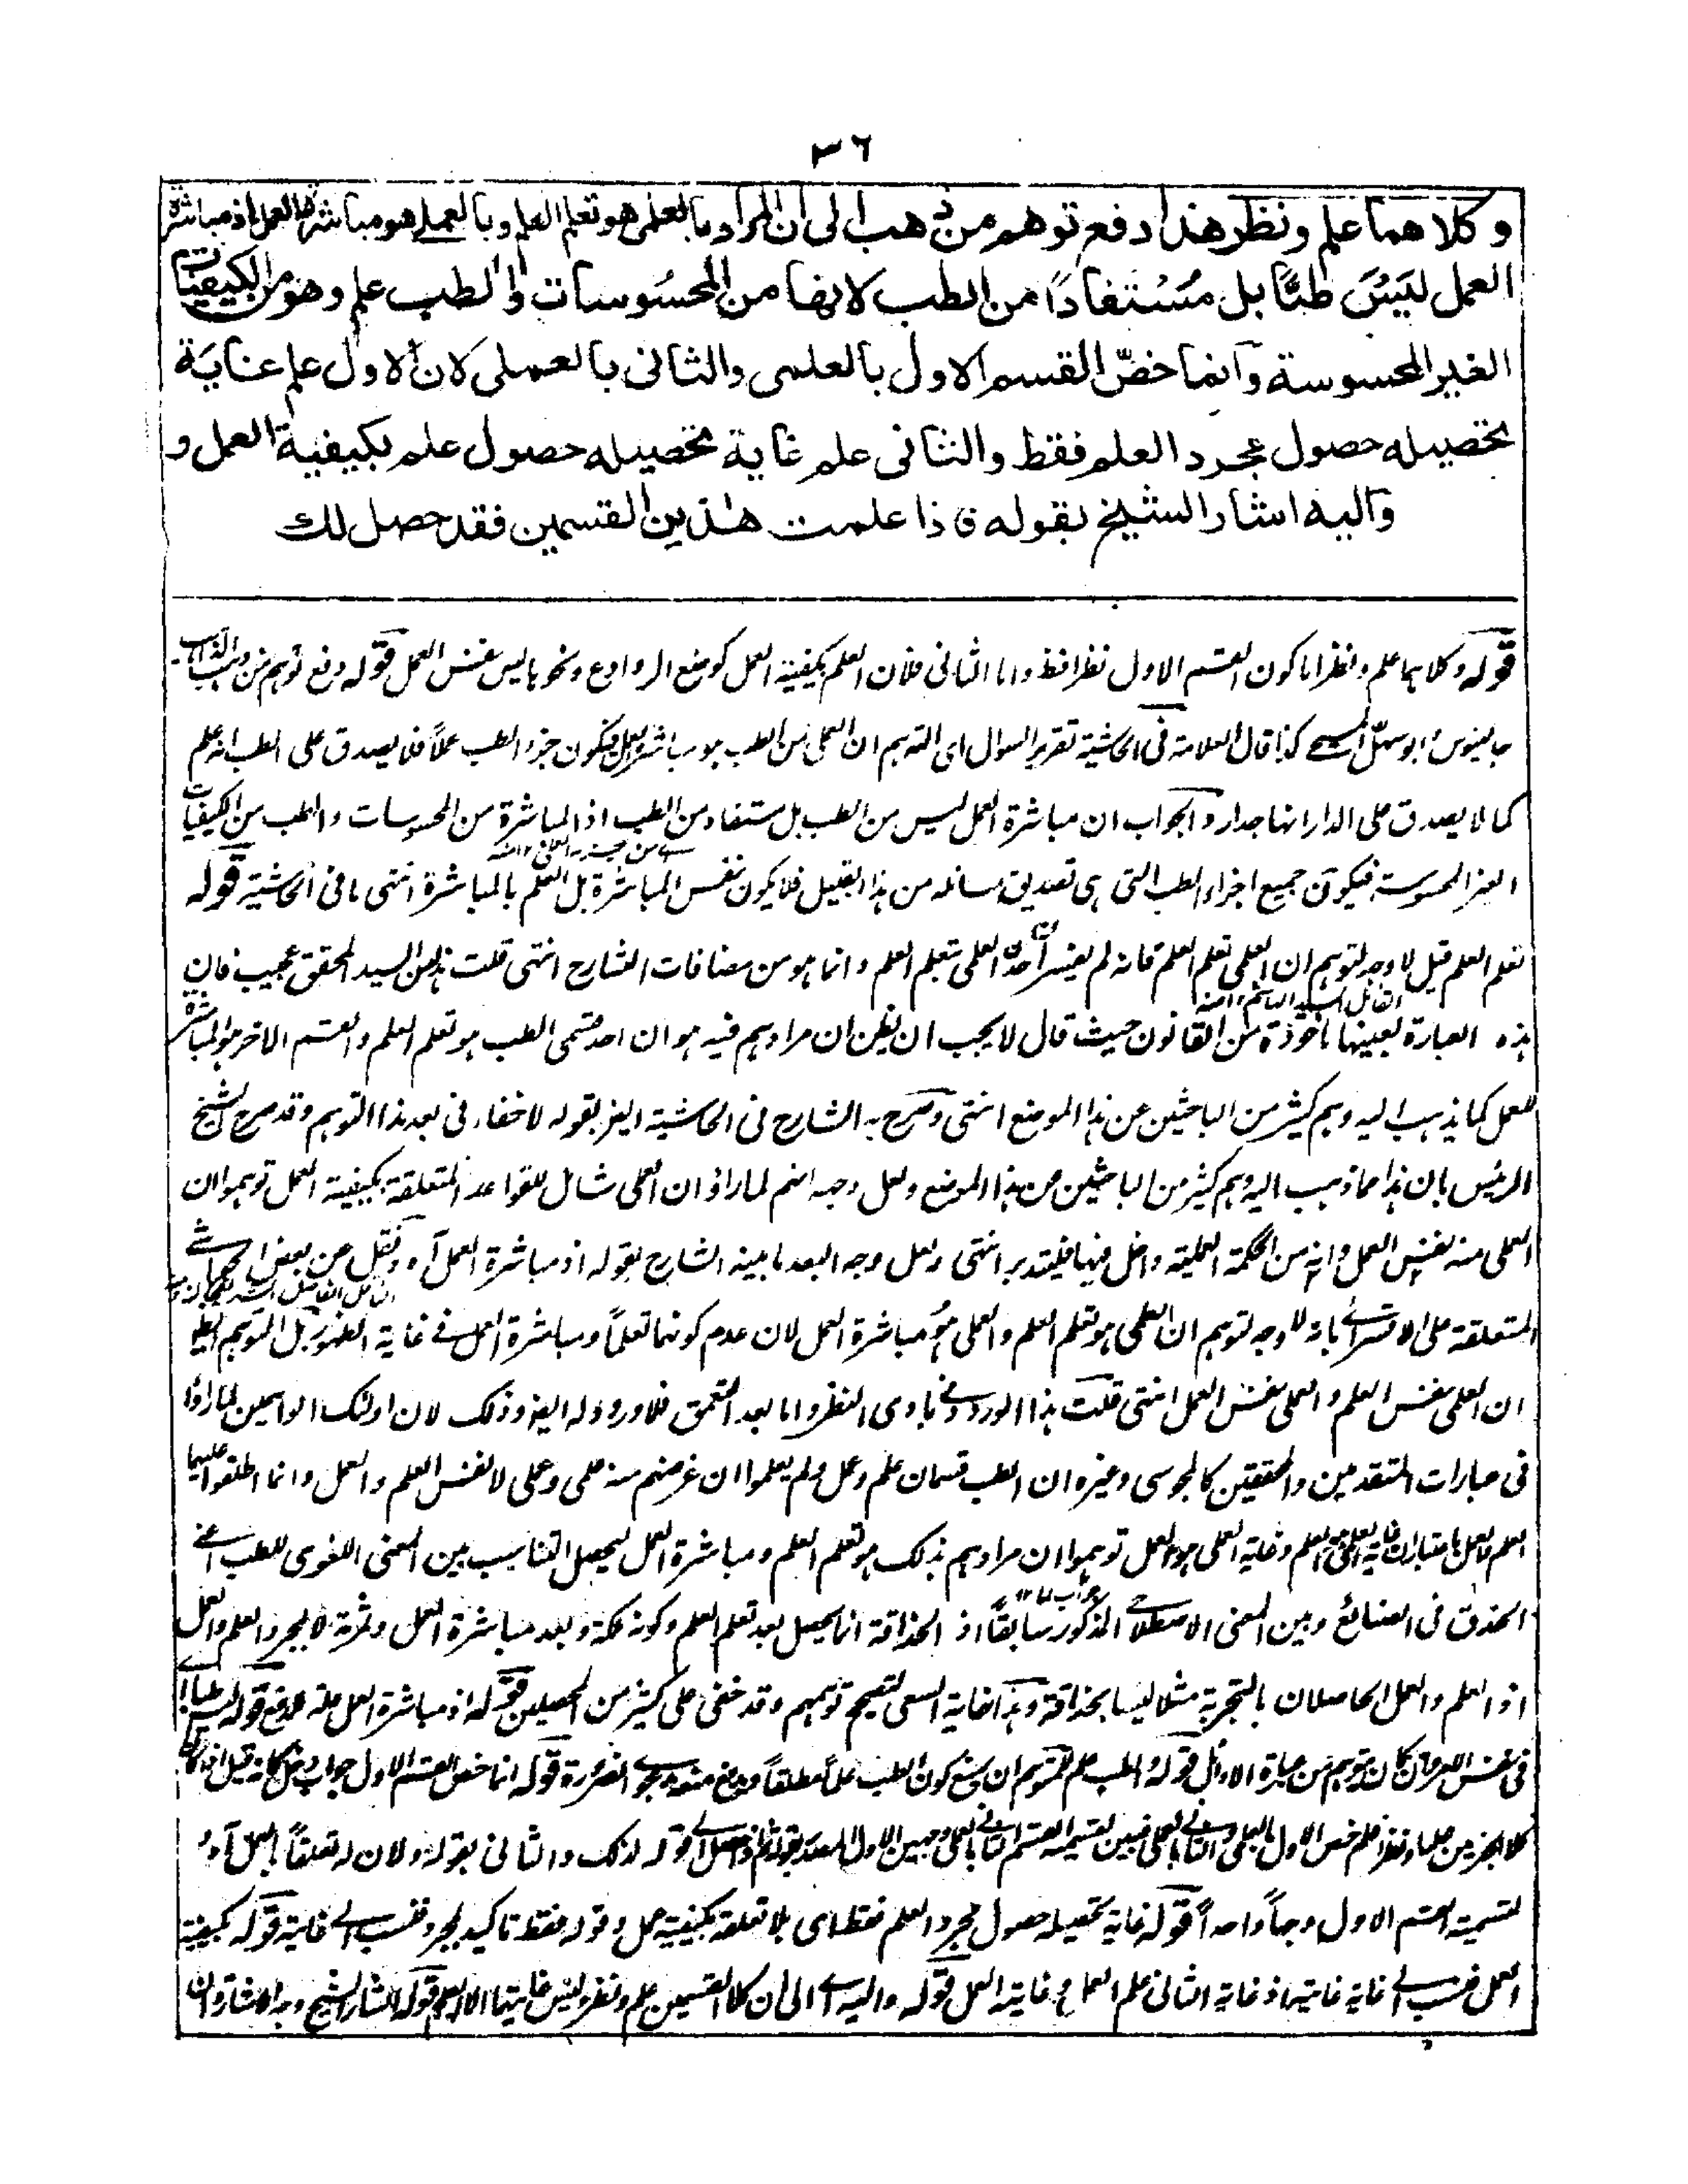 ٣٦
وكلاهما علم ونظر هذا دفع توهم من ذهب الى ان المراد بالعلمى هو تعلم العلم وبالعملى هو مباشرة العمل اذ مباشرة
العمل ليس طبًّا بل مستفادًا من الطب لانها من المحسوسات والطب علم وهو من الكيفيات
الغير المحسوسة وانما خصّ القسم الاول بالعلمى والثانى بالعملى لان الاول علم غاية
تحصيله حصول مجرد العلم فقط والثانى علم غاية تحصيله حصول علم بكيفية العمل و
واليه اشار الشيخ بقوله فاذا علمت هذين القسمين فقد حصل لك
قوله وكلاهما علم ونظر اما كون القسم الاول نظرا فظ واما الثانى فلان العلم بكيفية العمل كوضع الروادع ونحوها ليس نفس العمل قوله دفع توهم من ذهب الذاهب
جالينوس وابو سهل المسيحى كذا قال العلامة فى الحاشية تقرير السوال اى التوهم ان العملى من الطب هو مباشرة العمل فيكون جزء الطب عملاً فلا يصدق على الطب انه علم
كما لا يصدق على الدار انها جدار والجواب ان مباشرة العمل ليس من الطب بل مستفاد من الطب اذ المباشرة من المحسوسات والطب من الكيفيات
الغير المحسوسة فيكون جميع اجزاء الطب التى هى تصديق مسائله من هذا القبيل فلا يكون نفس المباشرة بل العلم بالمباشرة انتهى ما فى الحاشية قوله
تعلم العلم قيل لا وجه لتوهم ان العلمى تعلم العلم فانه لم يفسر احد العلمى بتعلم العلم وانما هو من مضافات الشارح انتهى قلت هذا من السيد المحقق عجيب فان
هذه العبارة بعينها ماخوذة من القانون حيث قال لا يجب ان يظن ان مرادهم فيه هو ان احد قسمى الطب هو تعلم العلم والقسم الاخر هو المباشرة
للعمل كما يذهب اليه وهم كثير من الباحثين عن هذا الموضع انتهى وصرح به الشارح فى الحاشية ايضا بقوله لا خفاء فى بعد هذا التوهم وقد صرح الشيخ
الرئيس بان هذا مما ذهب اليه وهم كثير من الباحثين عن هذا الموضع ولعل وجهه انهم لما راوا ان العملى شامل للقواعد المتعلقة بكيفية العمل توهموا ان
العملى منه نفس العمل وانه من الحكمة العملية داخل فيها فليتدبر انتهى ولعل وجه البعد ما بينه الشارح بقوله اذ مباشرة العمل آه ونقل عن بعض الحواشى
المتعلقة على الاقسرائى بانه لا وجه لتوهم ان العلمى هو تعلم العلم والعملى هو مباشرة العمل لان عدم كونهما تعلماً ومباشرة العمل فى غاية الظهور بل المتوهم
ان العلمى نفس العلم والعملى نفس العمل انتهى قلت هذا الورود فى بادى النظر واما بعد التعمق فلا ورود له ايضا وذلك لان اولئك الواهمين لما راوا
فى عبارات المتقدمين والمحققين كالمجوسى وغيره ان الطب قسمان علم وعمل ولم يعلموا ان غرضهم منه علمى وعملى لا نفس العلم والعمل وانما اطلقوا عليهما
العلم والعمل باعتبار ان غاية العلمى العلم وغاية العملى هو العمل توهموا ان مرادهم بذلك هو تعلم العلم ومباشرة العمل ليحصل التناسب بين المعنى اللغوى للطب اعنى
الحذق فى الصنائع وبين المعنى الاصطلاحى المذكور سابقاً اذ الحذاقة انما يحصل بعد تعلم العلم وكونه ملكة وبعد مباشرة العمل وثمرته لا بمجرد العلم والعمل
اذ العلم والعمل الحاصلان بالتجربة مثلا ليسا بحذاقة وهذا غاية السعى لتصحيح توهمهم وقد خفى على كثير من المحصلين قوله اذ مباشرة العمل علة للدفع قوله ليس طبا
فى نفس الامر وان كان يتوهم من عبارة الاوائل قوله والطب علم فللمتوهم ان يمنع كون الطب علماً مطلقاً قوله انما خص القسم الاول جواب دخل كانه قيل اذا كان
كلا الجزئين علما ونظرا فلم خص الاول بالعلمى والثانى بالعملى فبين
لتسمية القسم الاول وجهاً واحداً قوله غاية تحصيله حصول مجرد العلم فقط اى بلا تعلقه بكيفية عمل وقوله فقط تاكيد لمجرد فنسب الى غايته قوله بكيفية
العمل فنسب الى غاية غايته اذ غاية الثانى علم العمل وغايته العمل قوله واليه اى الى ان كلا القسمين علم ونظر وليس غايتهما الا العلم قوله اشار الشيخ وجه الاشارة ان